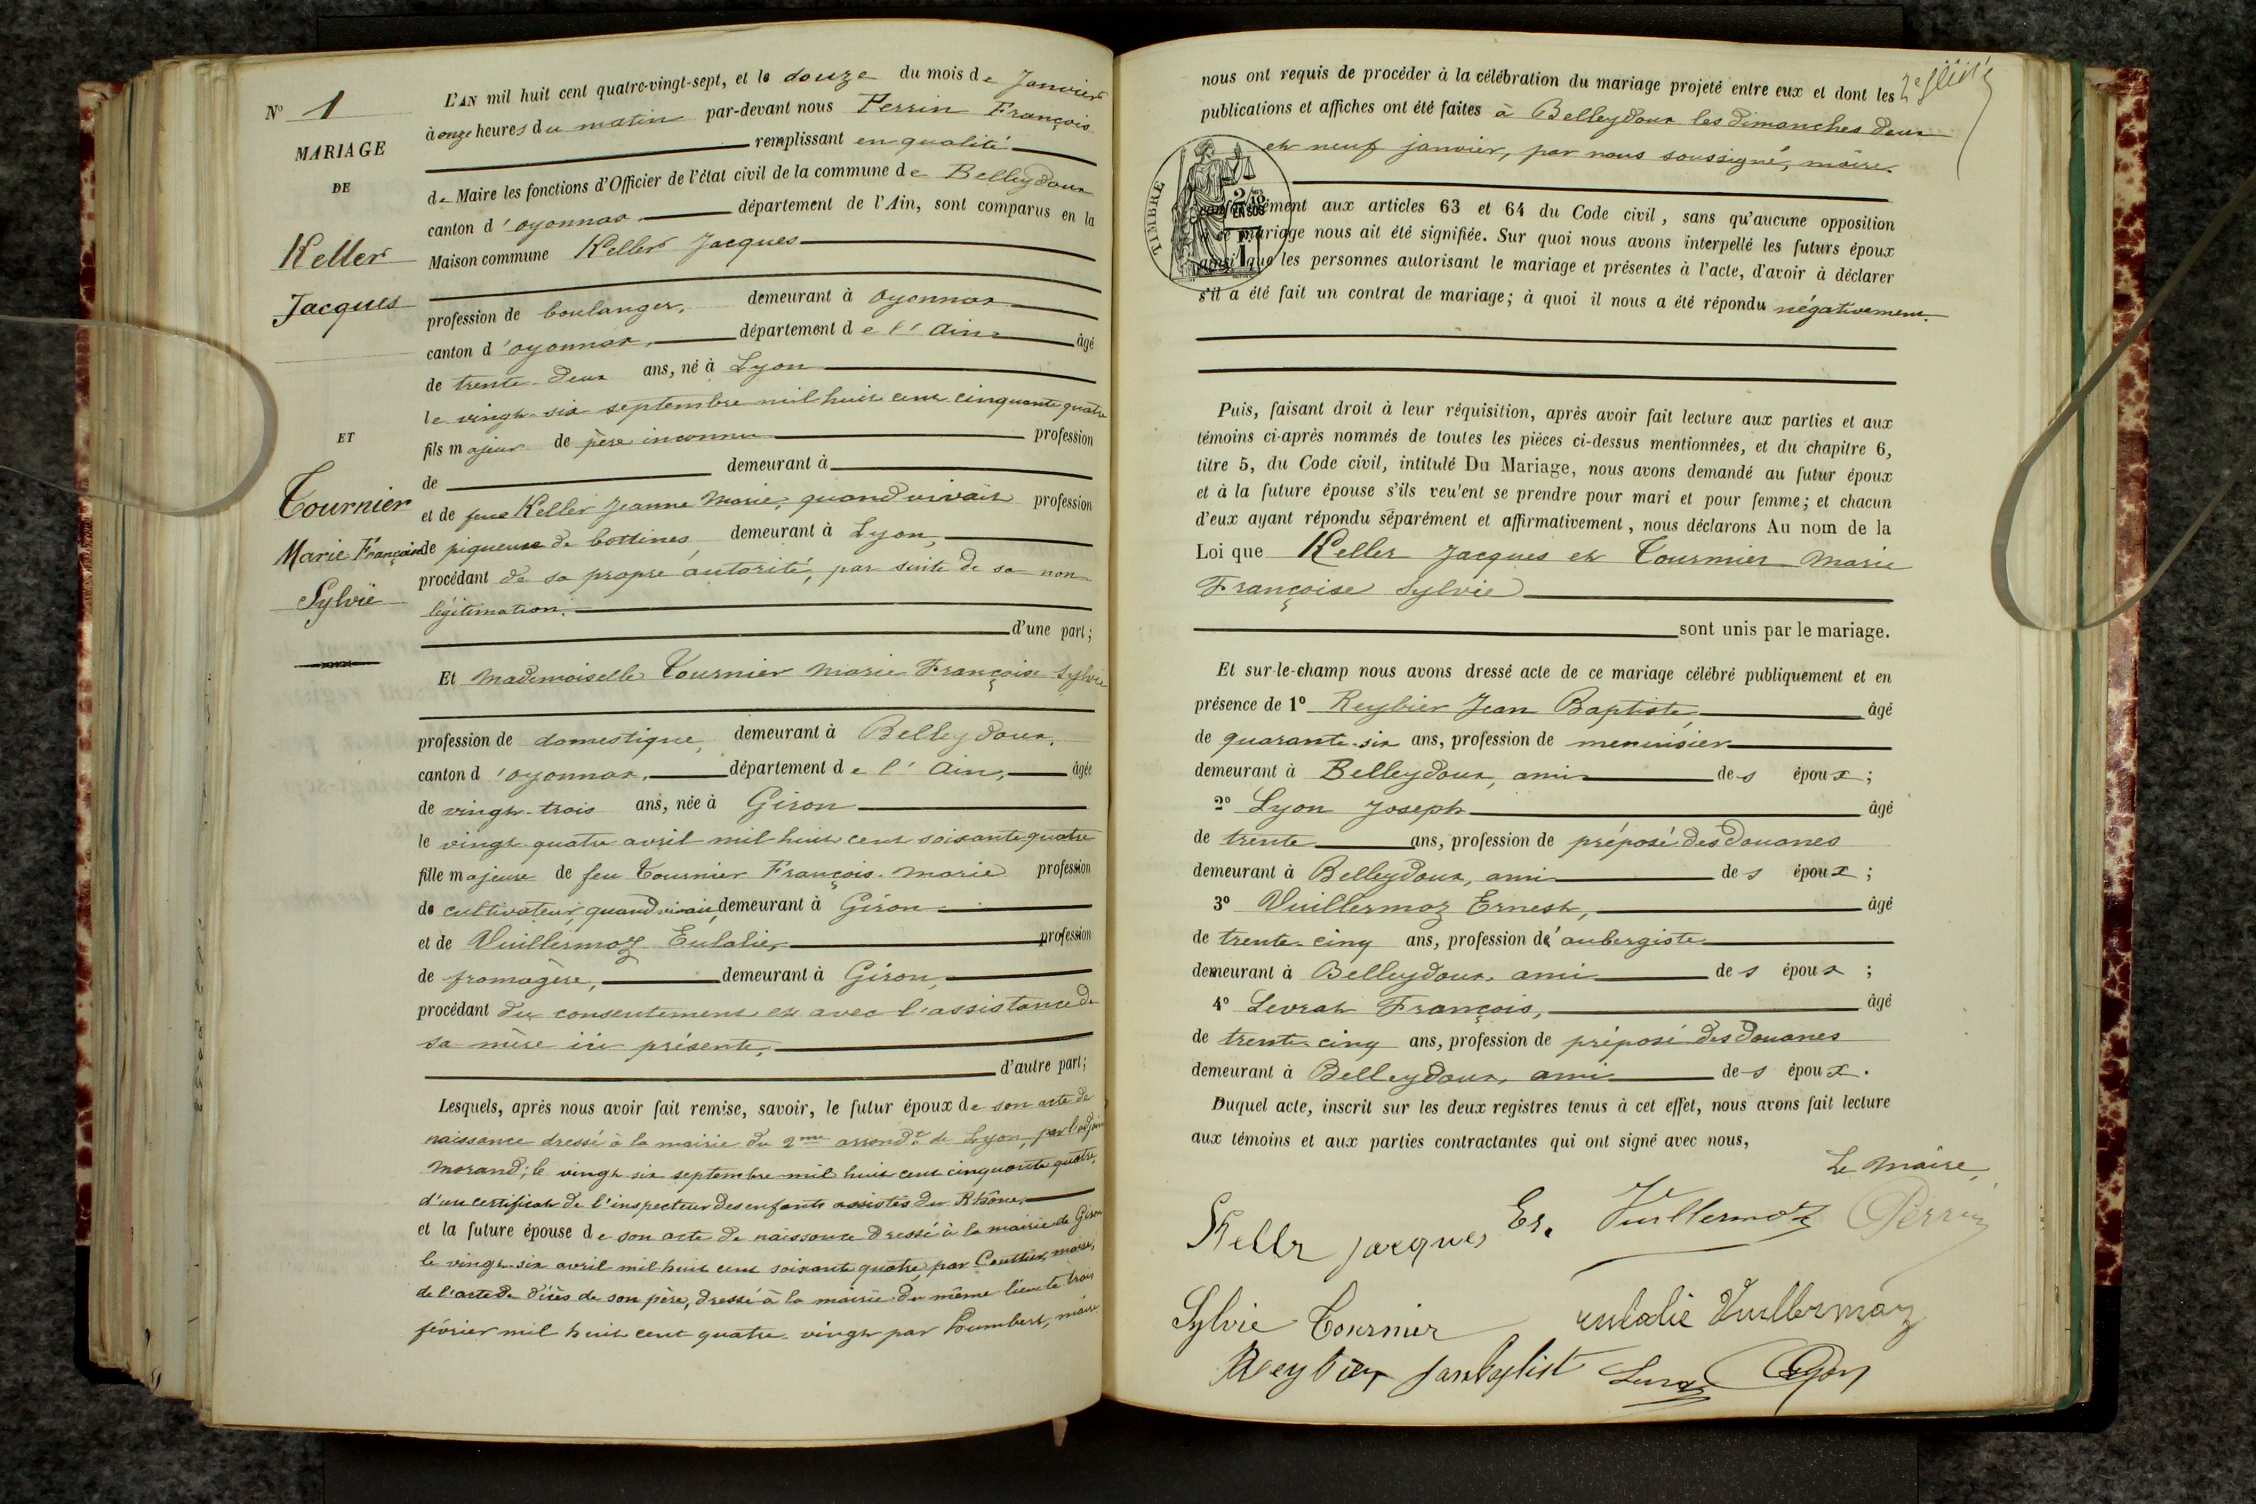 N° 1
MARIAGE
DE
Keller
Jacques
ET
Tournier
Marie Françoise
Sylvie
L'AN mil huit cent quatre-vingt-sept, et le douze du mois de Janvier
à onze heures du matin par-devant nous Perrin François
remplissant en qualité
de Maire les fonctions d'Officier de l'état civil de la commune de Belleydoux
canton d'oyonnax département de l'Ain, sont comparus en la
Maison commune Keller Jacques
profession de boulanger, demeurant à oyonnax
canton d'oyonnax, département de l'Ain âgé
de trente-deux ans, né à Lyon
le vingt-six septembre mil huit cent cinquante quatre
fils majeur de père inconnu profession
de demeurant à
et de feue Keller Jeanne Marie, quand vivait profession
de piqueuse de bottines demeurant à Lyon,
procédant de sa propre autorité, par suite de sa non
légitimation.
d'une part;
Et Mademoiselle Tournier Marie Françoise Sylvie
profession de domestique, demeurant à Belleydoux,
canton d'oyonnax, département de l'Ain, âgée
de vingt-trois ans, née à Giron
le vingt-quatre avril mil huit cent soixante quatre
fille majeure de feu Tournier François-Marie profession
de cultivateur, quand vivait, demeurant à Giron
et de Vuillermoz Eulalie, profession
de fromagère, demeurant à Giron,
procédant du consentement et avec l'assistance de
sa mère ici présente,
d'autre part;
Lesquels, après nous avoir fait remise, savoir, le futur époux de son acte de
naissance dressé à la mairie du 2me arrondt de Lyon, par l'adjoint
Morand; le vingt six septembre mil huit cent cinquante quatre,
d'un certificat de l'inspecteur des enfants assistés du Rhône,
et la future épouse de son acte de naissance dressé à la mairie de Giron
le vingt-six avril mil huit cent soixante quatre, par Coutier, maire,
de l'acte de décès de son père, dressé à la mairie du même lieu le trois
février mil huit cent quatre-vingt par Humbert, maire
nous ont requis de procéder à la célébration du mariage projeté entre eux et dont les
publications et affiches ont été faites à Belleydoux les dimanches deux
et neuf janvier, par nous soussigné, maire.
TIMBRE
2/10
EN SUS
1
conformément aux articles 63 et 64 du Code civil, sans qu'aucune opposition
à ce mariage nous ait été signifiée. Sur quoi nous avons interpellé les futurs époux
ainsi que les personnes autorisant le mariage et présentes à l'acte, d'avoir à déclarer
s'il a été fait un contrat de mariage; à quoi il nous a été répondu négativement.
Puis, faisant droit à leur réquisition, après avoir fait lecture aux parties et aux
témoins ci-après nommés de toutes les pièces ci-dessus mentionnées, et du chapitre 6,
titre 5, du Code civil, intitulé Du Mariage, nous avons demandé au futur époux
et à la future épouse s'ils veu'ent se prendre pour mari et pour femme; et chacun
d'eux ayant répondu séparément et affirmativement, nous déclarons Au nom de la
Loi que Keller Jacques et Tournier Marie
Françoise Sylvie
sont unis par le mariage.
Et sur-le-champ nous avons dressé acte de ce mariage célébré publiquement et en
présence de 1° Reybier Jean Baptiste, âgé
de quarante-six ans, profession de menuisier
demeurant à Belleydoux, ami des époux;
2° Lyon Joseph âgé
de trente ans, profession de préposé des Douanes
demeurant à Belleydoux, ami des époux;
3° Vuillermoz Ernest, âgé
de trente-cinq ans, profession d'aubergiste
demeurant à Belleydoux, ami des époux;
4° Levrat François, âgé
de trente-cinq ans, profession de préposé des Douanes
demeurant à Belleydoux, ami des époux.
Duquel acte, inscrit sur les deux registres tenus à cet effet, nous avons fait lecture
aux témoins et aux parties contractantes qui ont signé avec nous,
Le Maire,
Kellr jacques Er. Vuillermoz Perrin
Sylvie Tournier eulalie Vuillermoz
Reybier janbaptist Levrat Lyon